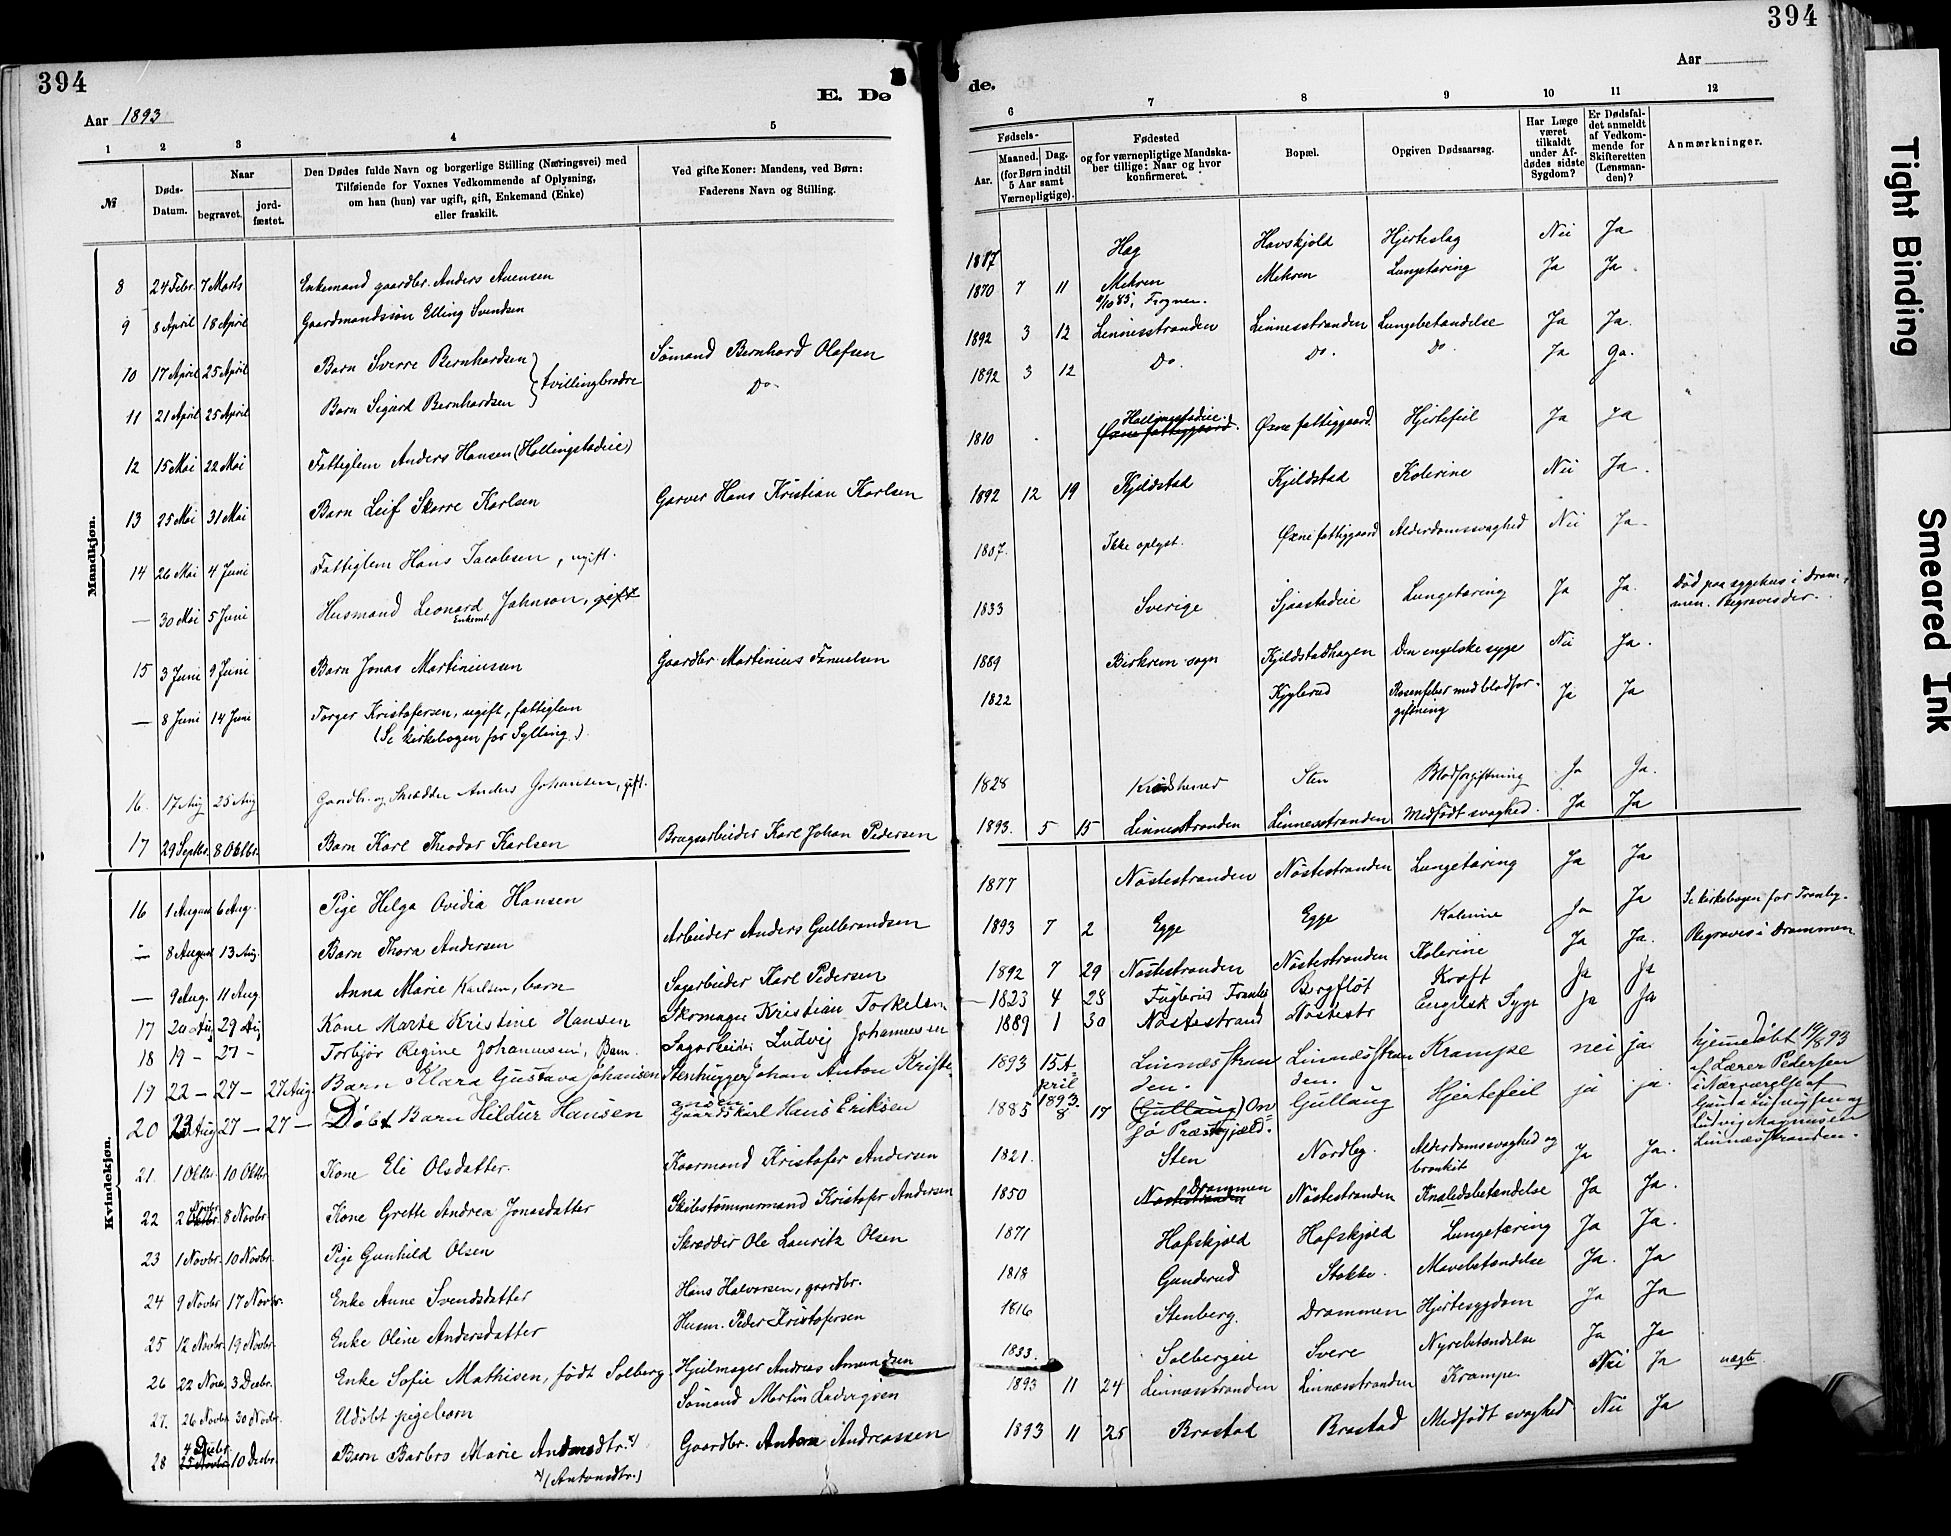 394
Aar 1893
E. Dø
1 2 3 4 5
№
Døds-
Datum.
Naar
begravet.
jord-
fæstet.
Den Dødes fulde Navn og borgerlige Stilling (Næringsvei) med
Tilføiende for Voxnes Vedkommende af Oplysning,
om han (hun) var ugift, gift, Enkemand (Enke)
eller fraskilt.
Ved gifte Koner: Mandens, ved Børn:
Faderens Navn og Stilling.
Mandkjøn.
8 24 Febr. 7 Marts Enkemand gaardbr. Anders
9 8 April 18 April Gaardmandssøn Elling Svendsen
10 17 April 25 April Barn Sverre Bernhardsen Sømand Bernhard Olafsen
Tvillingbrødre
11 21 April 25 April Barn Sigurd Bernhardsen Do
12 15 Mai 22 Mai Fattiglem Anders Hansen (Hallingstadeie)
13 25 Mai 31 Mai Barn Leif Skarre Karlsen Garver Hans Kristian Karlsen
14 26 Mai 4 Juni Fattiglem Hans Jacobsen, ugift.
— 30 Mai 5 Juni Husmand Leonard Johnson, gift
Enkemd
15 3 Juni 9 Juni Barn Jonas Martiniussen Gaardbr. Martinius
— 8 Juni 14 Juni Torger Kristofersen, ugift, fattiglem
(Se kirkebogen for Sylling.)
16. 17 Aug 25 Aug Gaardbr. og Skrædder Anders Johansen, gift.
17 29 Septbr. 8 Oktbr. Barn Karl Theodor Karlsen Brugsarbeider Karl Johan Pedersen
Kvindekjøn.
16 1 August 6 Aug. Pige Helga Ovidia Hansen
— 8 August 13 Aug. Barn Thora Andersen Arbeider Anders Gulbrandsen
— 9 Aug. 11 Aug. Anna Marie Karlsen, barn Sagarbeider Karl Pedersen
17 20 Aug 29 Aug Kone Marte Kristine Hansen Skomager Kristian Torkelsen
18 19 - 27 - Torbjør Regine Johannesen, Barn Sagarbeider Ludvig Johannesen
19 22 - 27 - 27 Aug Barn Klara Gustava Johansen Stenhugger Johan Anton Kristi-
ansen.
20 23 Aug 27 - 27 - Døbt Barn Hildur Hansen Gaardskarl Hans Eriksen
21. 1 Oktbr. 10 Oktbr. Kone Eli Olsdatter. Kaarmand Kristofer Andersen
22 2 Oktbr. Novbr 8 Novbr. Kone Grette Andrea Jonasdatter Skibstømmermand Kristofer Andersen
23 1 Novbr. 10 Novbr. Pige Gunhild Olsen Skrædder Ole Lauritz Olsen
24 9 Novbr 17 Novbr. Enke Anne Svendsdatter Hans Halvorsen, gaardbr.
25 12 Novbr. 19 Novbr. Enke Oline Andersdatter Husm. Peder Kristofersen
26 22 Novb. 3 Decbr. Enke Sofie Mathisen, født Solberg Hjulmager Andreas Amundsen
27. 26 Novbr 30 Novbr. Udøbt pigebarn Sømand Martin Ludvigsen
28 4 Decbr. 25 Novbr. 10 Decbr. Barn Barbro Marie
(Antonsdtr.) Gaardbr. Anton Andreassen
394
Aar
de.
6 7 8 9 10 11 12
Fødsels-
Aar.
Maaned. Dag.
(for Børn indtil
5 Aar samt
Værnepligtige).
Fødested
og for værnepligtige Mandska-
ber tillige: Naar og hvor
konfirmeret.
Bopæl.
Opgiven Dødsaarsag.
Har Læge
været
tilkaldt
under Af-
dødes sidste
Sygdom?
Er Dødsfal-
det anmeldt
af Vedkom-
mende for
Skifteretten
(Lensman-
den)?
Anmærkninger.
1817 Hag Havskjold Hjerteslag Nei Ja
1870 7 11 Mehren Mehren Lungetæring Ja Ja.
Frogner.
1892 3 12 Linnesstranden Linnesstranden Lungebetændelse Ja Ja.
1892 3 12 Do. Do. Do. Ja Ja.
1810 Øxne fattiggaard. Hallingstadeie. Øxne fattiggaard. Hjertefeil Ja Ja
1892 12 19 Kjeldstad Kjeldstad Kolerine Nei Ja.
1807. Ikke oplyst. Øxne fattiggaard Alderdomssvaghed Nei Ja.
1833 Sverige Sjaastadeie Lungetæring Ja Ja. Død paa sygehus i Dram-
men. Begraves der.
1889 sogn Kjeldstadhagen Den engelske syge Nei Ja.
1822 Kjglerud Rosenfeber med blodfor-
giftning Ja Ja
1828 Krødsherred Sten Blodforgiftning Ja Ja.
1893. 5 15 Linnesstranden Linnesstranden Medfødt svaghed. Ja Ja
1877 Nøstestranden Nøstestranden Lungetæring Ja Ja
1893 7 2 Egge Egge Kolerine Ja Ja Se kirkebogen for Tranby.
1892 7 29 Nøstestranden Nøstestranden Kolerine Ja Ja. Begraves i Drammen
1823 4 28 Fuglerud Tranby Bergfløt Kræft Ja Ja
1889 1 30 Nøstestrand Nøstestr Engelsk Syge Ja Ja
1893 15 A-
pril
1893. Linnæsstran
den. Linnæsstran
den. Krampe nei ja. hjemmedøbt 19/8 93
af Lærer Pedersen
i Nærværelse af
Gunda Ludvigsen og
Ludvig Magnusen
Linnæsstranden.
1885 8 17 (Gullaug) On
sø Præstegjæld. Gullaug Hjertefeil ja ja.
1821. Sten Nordby. Alderdomssvaghed og
bronkit Ja Ja.
1850 Nøstestranden Drammen Nøstestranden Knæledsbetændelse Ja Ja.
1871 Hafskjold Hafskjold Lungetæring Ja Ja.
1818 Gunderud Stokke. Mavebetændelse Ja. Ja
1816 Stenberg. Drammen Hjertesygdom Ja Ja
1833. Solbergeie Svere Nyrebetændelse Ja Ja
1893 11 24 Linnæsstranden Linnæsstranden Krampe. Nei Ja uægte.
1893 11 25 Brastad Brastad Medfødt svaghed Nei Ja
Tight Binding
Smeared Ink